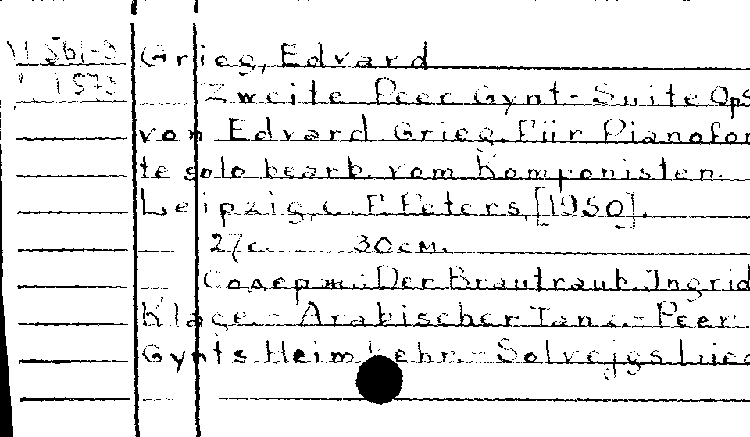 Grieg, Edvard
1573 Zweite Peer Gynt-Suite Op5
von Edvard Grieg. Für Pianofor
te solo bearb. vom Komponisten.
Leipzig, C. F. Peters, [1950].
27c. 30см.
Содерж.: Der Brautraub. Ingrid
Klage. - Arabischer Tanz. - Peer
Gynts Heimkehr. - Solvejgs Lied